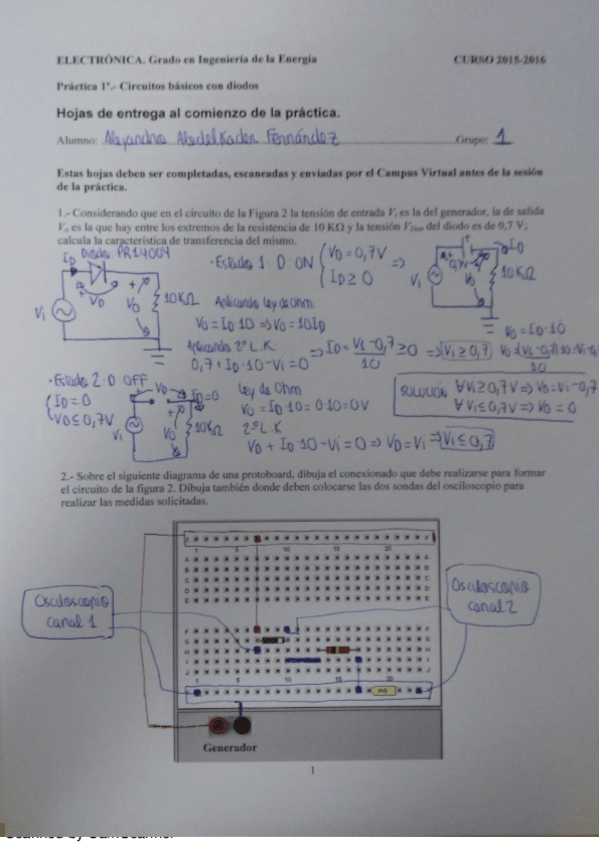 ELECTRÓNICA. Grado en Ingeniería de la Energía CURSO 2015-2016
Práctica 1ª.- Circuitos básicos con diodos
Hojas de entrega al comienzo de la práctica.
Alumno: Alejandro Abdelkader Fernández Grupo: 1
Estas hojas deben ser completadas, escaneadas y enviadas por el Campus Virtual antes de la sesión
de la práctica.
1.- Considerando que en el circuito de la Figura 2 la tensión de entrada Vi es la del generador, la de salida
Vo es la que hay entre los extremos de la resistencia de 10 KΩ y la tensión VDon del diodo es de 0,7 V;
calcula la característica de transferencia del mismo.
ID Diodo: PR14004
VD
Vi
VO
10KΩ
· Estado 1: D: ON { VD = 0,7V =>
ID ≥ 0
ID
0,7V
Vi
VO
10KΩ
Aplicando ley de Ohm
VO = ID·10 => VO = 10ID
VO = ID·10
Aplicando 2º L.K. => ID = Vi-0,7/10 ≥ 0 => Vi ≥ 0,7
0,7 + ID·10 - Vi = 0
· Estado 2: D OFF
{ ID = 0
VD ≤ 0,7V
VD
ID=0
Vi
VO
10KΩ
Ley de Ohm
VO = ID·10 = 0·10 = 0V
2º L.K
VD + ID·10 - Vi = 0 => VD = Vi => Vi ≤ 0,7
SOLUCIÓN ∀Vi≥0,7V => VO = Vi-0,7
∀Vi≤0,7V => VO = 0
2.- Sobre el siguiente diagrama de una protoboard, dibuja el conexionado que debe realizarse para formar
el circuito de la figura 2. Dibuja también donde deben colocarse las dos sondas del osciloscopio para
realizar las medidas solicitadas.
X X
1 5 10 15 20
A A
B B
C C
D D
E E
Osciloscopio
canal 1
Osciloscopio
canal 2
F F
G G
H H
I I
J J
1 5 10 15 20
Generador
1